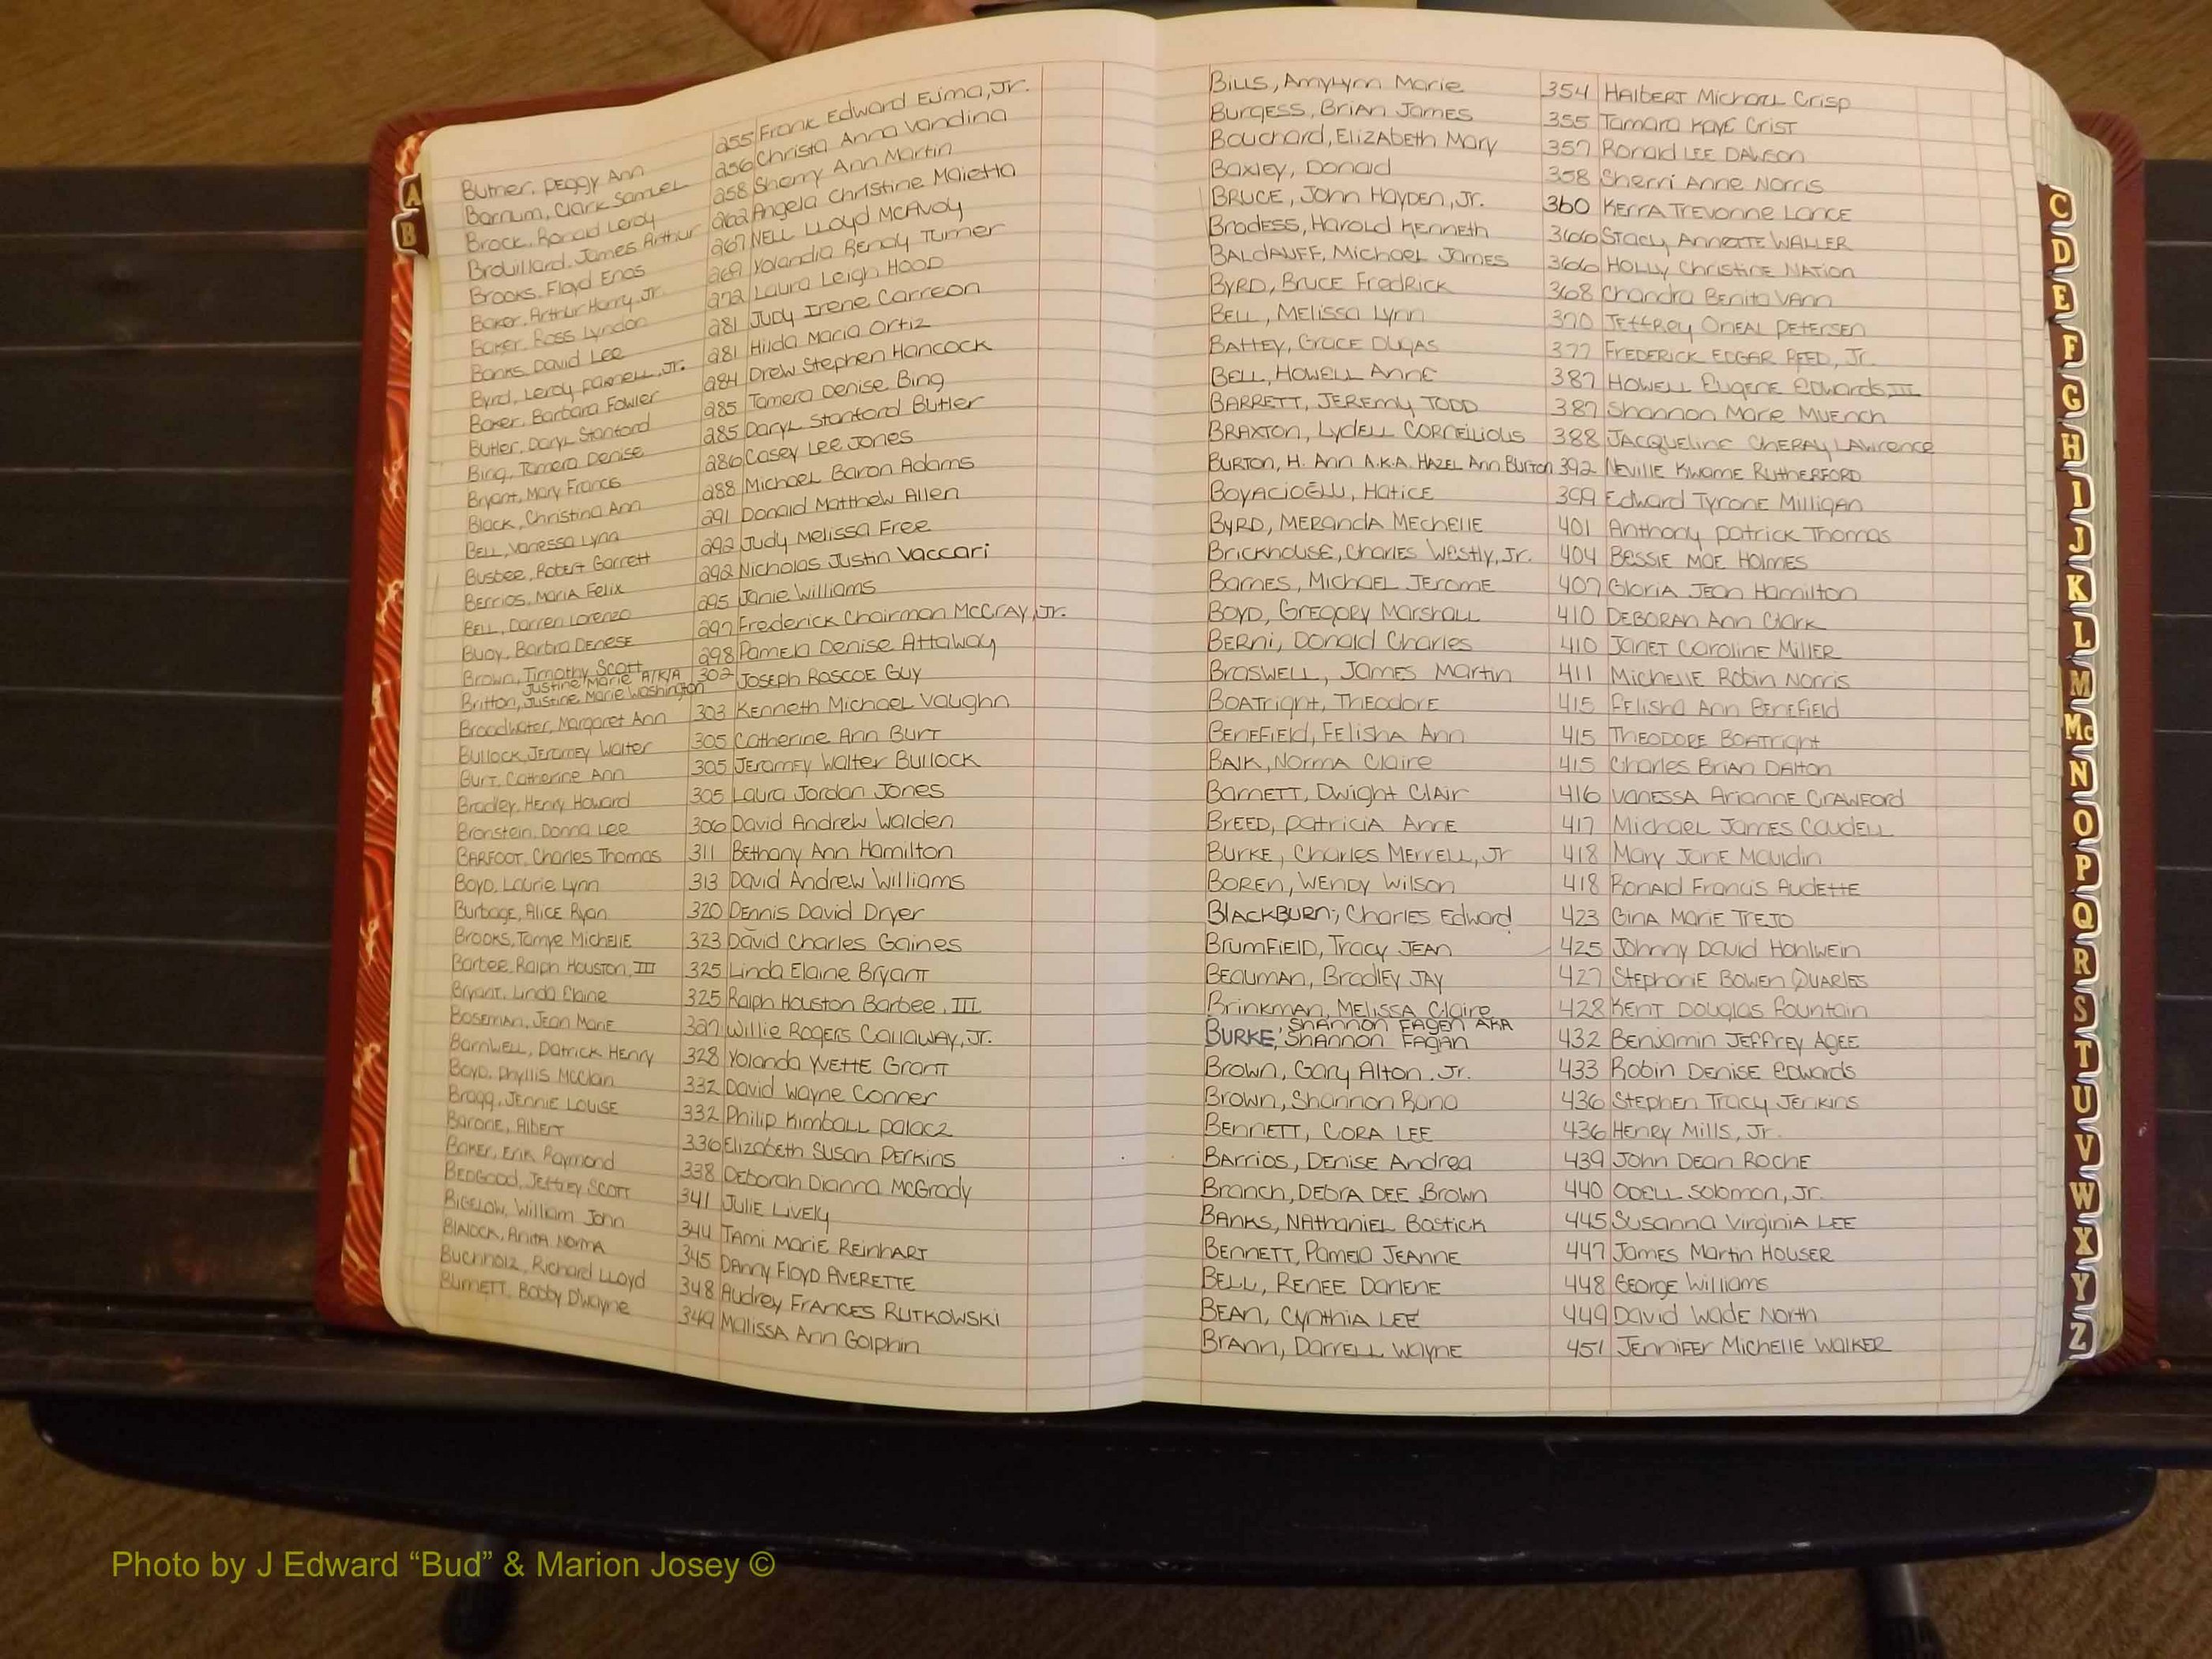 Butner, Peggy Ann 255 Frank Edward Ejma, Jr.
Barnum, Clark Samuel 256 Christa Anna Vandina
Brock, Ronald Leroy 258 Sherry Ann Martin
Brouillard, James Arthur 262 Angela Christine Maietta
Brooks, Floyd Enos 267 Nell Lloyd McAvoy
Baker, Arthur Harry, Jr. 269 Yolandia Renay Turner
Baker, Ross Lyndon 272 Laura Leigh Hood
Banks, David Lee 281 Judy Irene Carreon
Byrd, Leroy Parnell, Jr. 281 Hilda Maria Ortiz
Baker, Barbara Fowler 284 Drew Stephen Hancock
Butler, Daryl Stanford 285 Tamera Denise Bing
Bing, Tamera Denise 285 Daryl Stanford Butler
Bryant, Mary Francis 286 Casey Lee Jones
Black, Christina Ann 288 Michael Baron Adams
Bell, Vanessa Lynn 291 Donald Matthew Allen
Busbee, Robert Garrett 292 Judy Melissa Free
Berrios, Maria Felix 292 Nicholas Justin Vaccari
Bell, Darren Lorenzo 295 Janie Williams
Buoy, Barbra Denese 297 Frederick Chairman McCray, Jr.
Brown, Timothy Scott 298 Pamela Denise Attaway
Britton, Justine Marie A/K/A Justine Marie Washington 302 Joseph Roscoe Guy
Broadwater, Margaret Ann 303 Kenneth Michael Vaughn
Bullock, Jeramey Walter 305 Catherine Ann Burt
Burt, Catherine Ann 305 Jeramey Walter Bullock
Bradley, Henry Howard 305 Laura Jordan Jones
Bronstein, Donna Lee 306 David Andrew Walden
Barfoot, Charles Thomas 311 Bethany Ann Hamilton
Boyd, Laurie Lynn 313 David Andrew Williams
Burbage, Alice Ryan 320 Dennis David Dryer
Brooks, Tamye Michelle 323 David Charles Gaines
Barbee, Ralph Houston, III 325 Linda Elaine Bryant
Bryant, Linda Elaine 325 Ralph Houston Barbee, III
Boseman, Jean Marie 327 Willie Rogers Callaway, Jr.
Barnwell, Patrick Henry 328 Yolanda Yvette Grant
Boyd, Phyllis McClain 332 David Wayne Conner
Bragg, Jennie Louise 332 Philip Kimball Palacz
Barone, Albert 336 Elizabeth Susan Perkins
Baker, Erik Raymond 338 Deborah Dianna McGrady
Bedgood, Jeffrey Scott 341 Julie Lively
Bigelow, William John 344 Tami Marie Reinhart
Blalock, Anita Norma 345 Danny Floyd Averette
Buchholz, Richard Lloyd 348 Audrey Frances Rutkowski
Burnett, Bobby D'wayne 349 Malissa Ann Golphin
Bills, Amylynn Marie 354 Halbert Michael Crisp
Burgess, Brian James 355 Tamara Kaye Crist
Bouchard, Elizabeth Mary 357 Ronald Lee Dawson
Baxley, Donald 358 Sherri Anne Norris
Bruce, John Hayden, Jr. 360 Kerra Trevonne Lance
Brodess, Harold Kenneth 366 Stacy Annette Waller
Baldauff, Michael James 366 Holly Christine Nation
Byrd, Bruce Fredrick 368 Chandra Benita Vann
Bell, Melissa Lynn 370 Jeffrey Oneal Petersen
Battey, Grace Dugas 377 Frederick Edgar Reed, Jr.
Bell, Howell Anne 387 Howell Eugene Edwards, III
Barrett, Jeremy Todd 387 Shannon Marie Muench
Braxton, Lydell Corneilious 388 Jacqueline Cheray Lawrence
Burton, H. Ann A.K.A. Hazel Ann Burton 392 Neville Kwame Rutherford
Boyacioğlu, Hatice 399 Edward Tyrone Milligan
Byrd, Meranda Mechelle 401 Anthony Patrick Thomas
Brickhouse, Charles Westly, Jr. 404 Bessie Mae Holmes
Barnes, Michael Jerome 407 Gloria Jean Hamilton
Boyd, Gregory Marshall 410 Deborah Ann Clark
Berni, Donald Charles 410 Janet Caroline Miller
Braswell, James Martin 411 Michelle Robin Norris
Boatright, Theodore 415 Felisha Ann Benefield
Benefield, Felisha Ann 415 Theodore Boatright
Baik, Norma Claire 415 Charles Brian Dalton
Barnett, Dwight Clair 416 Vanessa Arianne Crawford
Breed, Patricia Anne 417 Michael James Caudell
Burke, Charles Merrell, Jr 418 Mary Jane Mauldin
Boren, Wendy Wilson 418 Ronald Francis Audette
Blackburn, Charles Edward 423 Gina Marie Trejo
Brumfield, Tracy Jean 425 Johnny David Hohlwein
Beauman, Bradley Jay 427 Stephanie Bowen Quarles
Brinkman, Melissa Claire 428 Kent Douglas Fountain
Burke, Shannon Fagen AKA Shannon Fagan 432 Benjamin Jeffrey Agee
Brown, Gary Alton, Jr. 433 Robin Denise Edwards
Brown, Shannon Rena 436 Stephen Tracy Jenkins
Bennett, Cora Lee 436 Henry Mills, Jr.
Barrios, Denise Andrea 439 John Dean Roche
Branch, Debra Dee Brown 440 Odell Solomon, Jr.
Banks, Nathaniel Bostick 445 Susanna Virginia Lee
Bennett, Pamela Jeanne 447 James Martin Houser
Bell, Renee Darlene 448 George Williams
Bean, Cynthia Lee 449 David Wade North
Brann, Darrell Wayne 451 Jennifer Michelle Walker
A
B
C
D
E
F
G
H
I
J
K
L
M
Mc
N
O
P
Q
R
S
T
U
V
W
X
Y
Z
Photo by J Edward “Bud” & Marion Josey ©